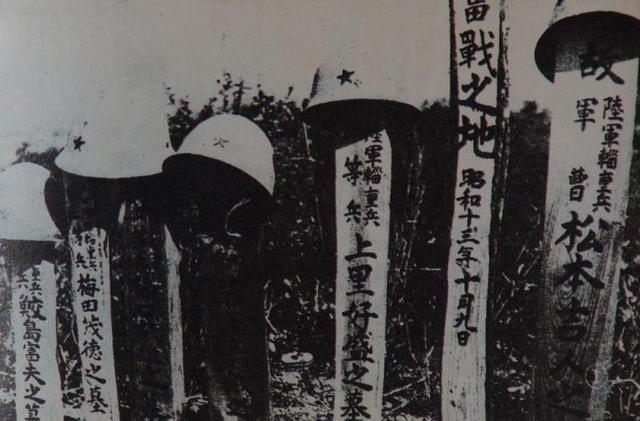 故
陸軍輜重兵
軍曹
松本吉人之
戰之地
昭和十三年十月九日
陸軍輜重兵
等兵
上里好盛之墓
重兵
等兵
梅田茂徳之墓
重兵
兵
島富夫之墓